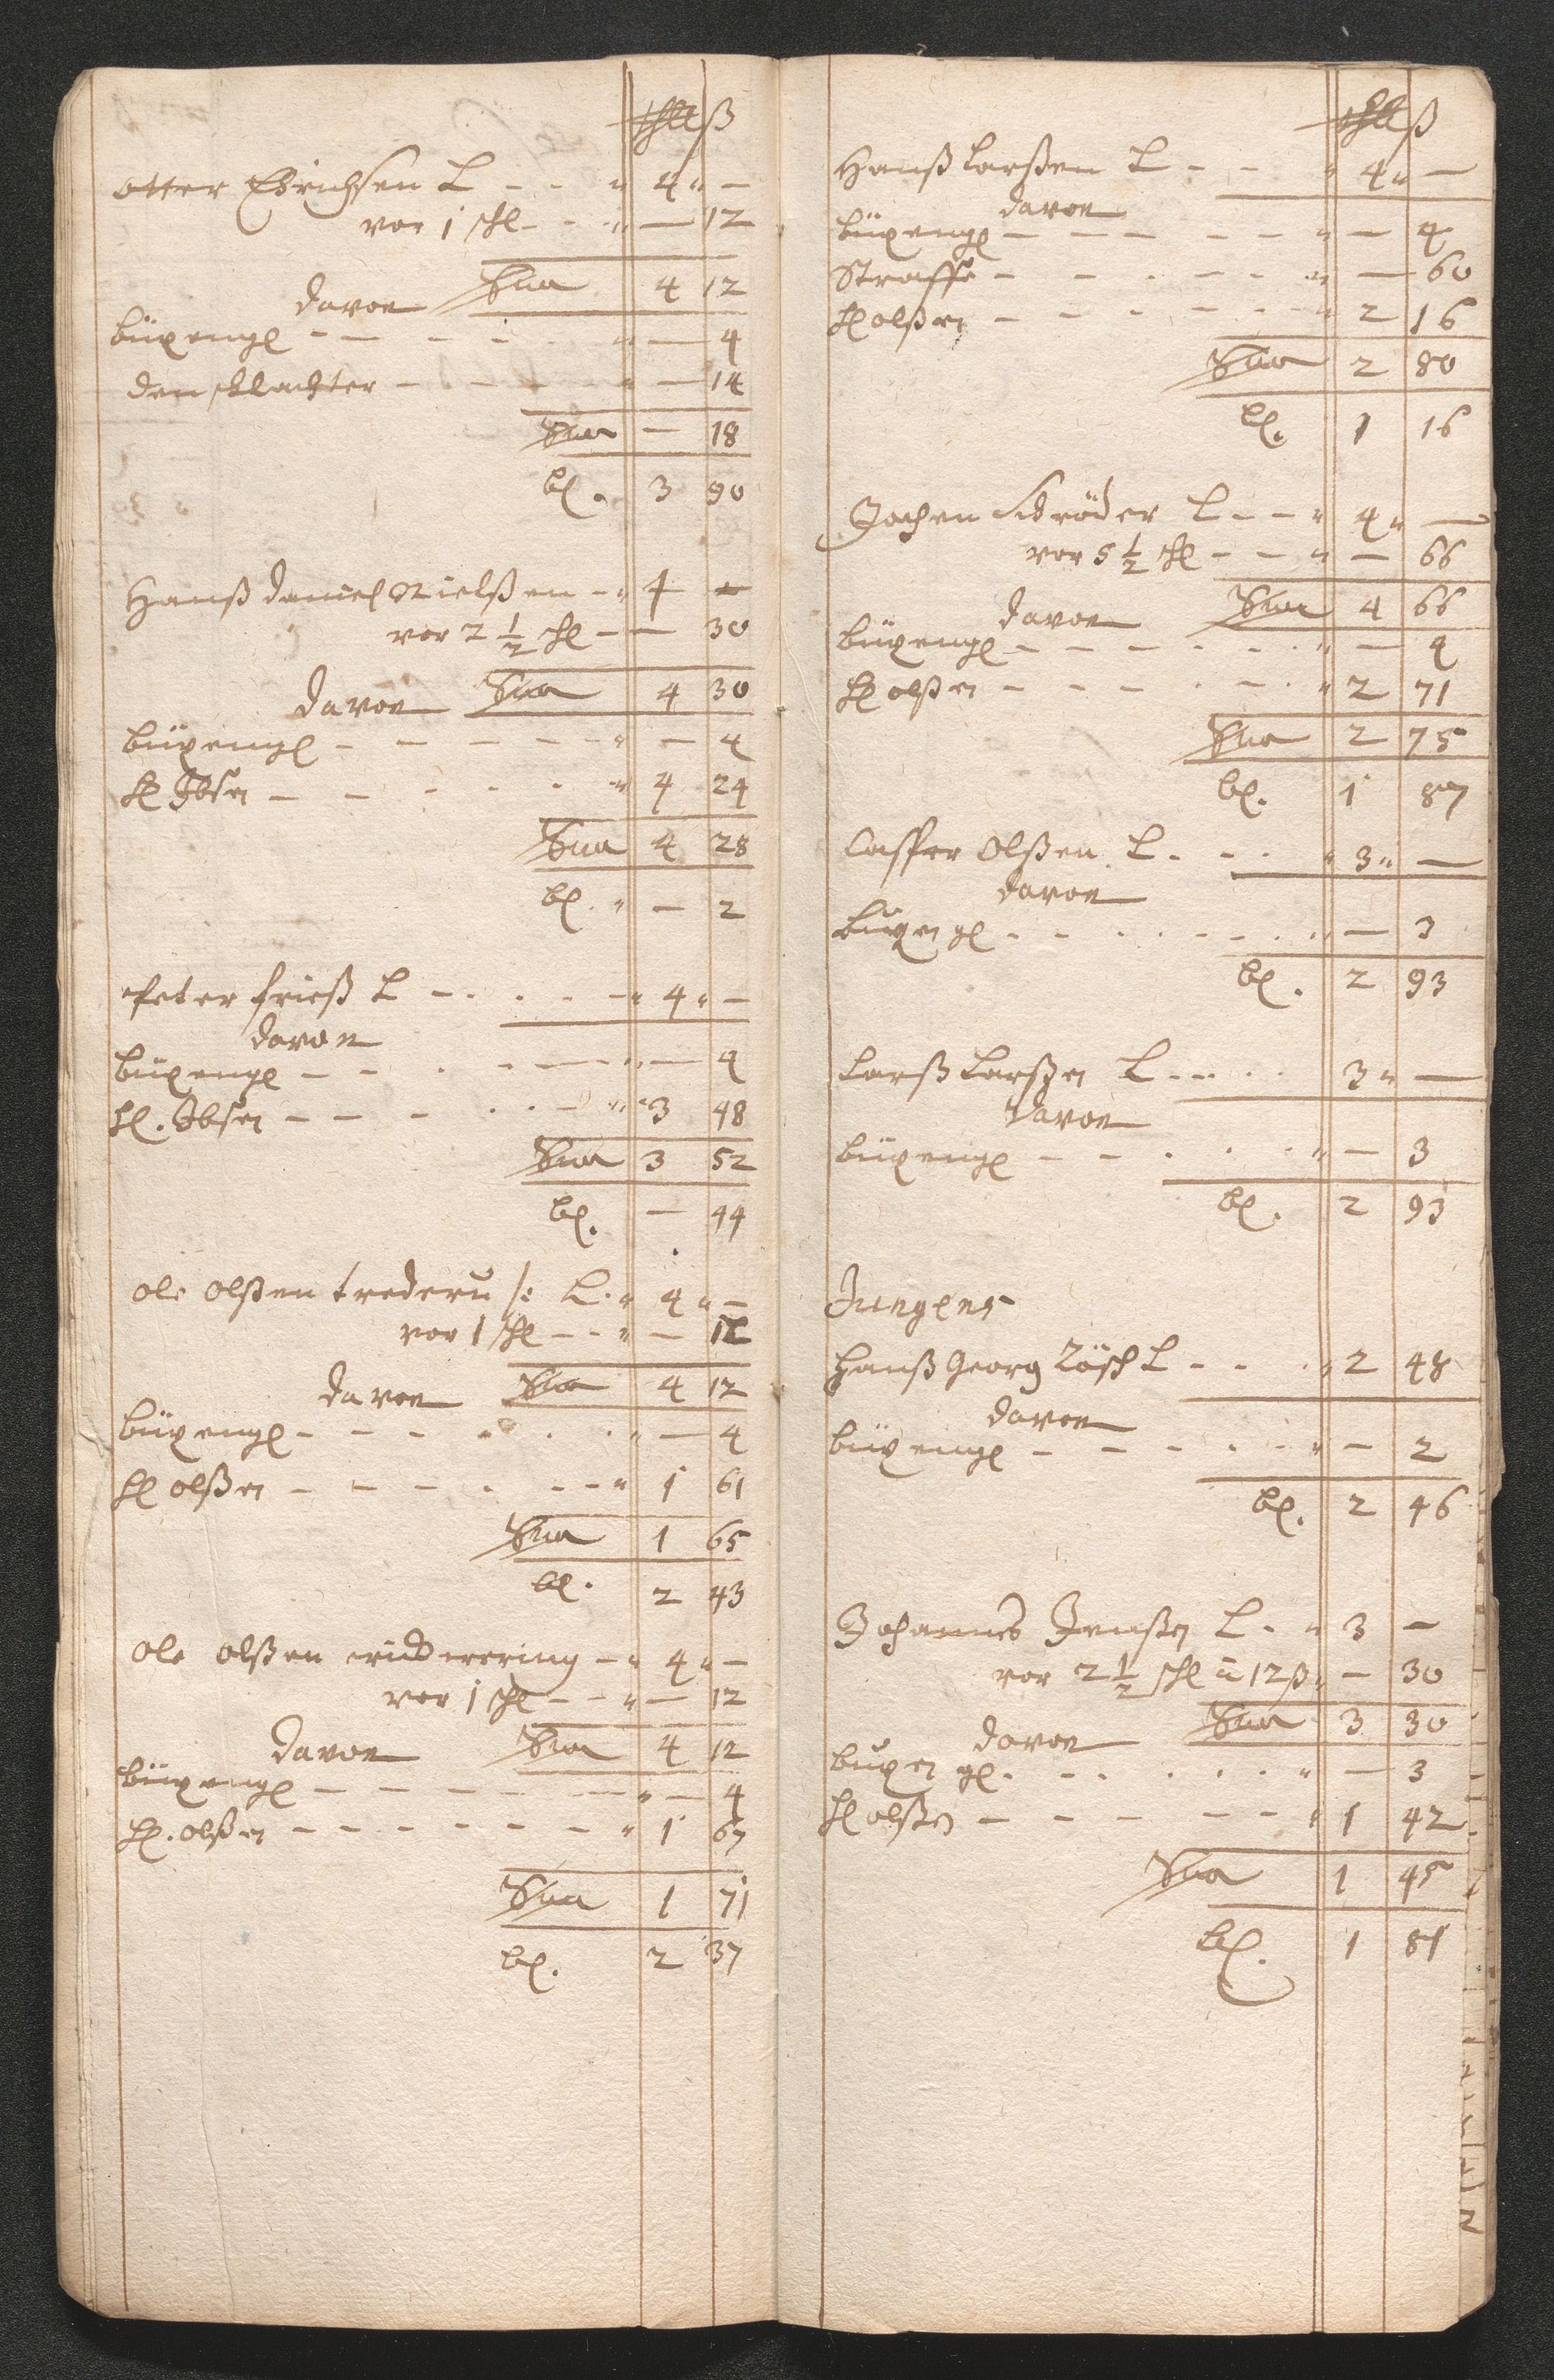 thll ß
Otter Erichsen L - - " 4 " —
vor 1 schl - - " — 12
Sua 4 12
davon
büxengl - - - - - " — 4
den schlachter - - - - - " — 14
Sua — 18
bl. 3 90
Hanß Daniel Nielßen - " 4 —
vor 2 1/2 schl - - — 30
davon Sua 4 30
büxengl - - - - - " — 4
H Ibsen - - - - - " 4 24
Sua 4 28
bl. " — 2
Peter Frieß L - . . . - " 4 " —
davon
büxengl - - . - - - " — 4
H. Ibsen - - - . . - " 3 48
Sua 3 52
bl. — 44
Ole Olßen L. " 4 " —
vor 1 schl - - " — 12
davon Sua 4 12
büxengl - - - . . . " — 4
H olßen - - - . - - " 1 61
Sua 1 65
bl. 2 43
Ole Olßen - " 4 " —
vor 1 schl - - " — 12
davon Sua 4 12
büxengl - - - - - - " — 4
H. olßen - - - - - - " 1 67
Sua 1 71
bl. 2 37
thll ß
Hanß Larßen L - - " 4 " —
davon
büxengl - - - - - - " — 4
Straffe - - . - - " — 60
H olßen - - - - - - " 2 16
Sua 2 80
bl. 1 16
Jochen Schröder L - - " 4 " —
vor 5 1/2 schl - - " — 66
davon Sua 4 66
büxengl - - - . . . " — 4
H olßen - - - . - . " 2 71
Sua 2 75
bl. 1 87
Casper Olßen L . - . " 3 " —
davon
büxengl . - . . - . . " — 3
bl. 2 93
Larß Larßen L . - . . 3 " —
davon
büxengl - - . . . " — 3
bl. 2 93
Jungens
Hanß Georg Zösch L - - . " 2 48
davon
büxengl - - - . - " — 2
bl. 2 46
Johannes Jenßen L . " 3 —
vor 2 1/2 schl a 12 ß " — 30
davon Sua 3 30
büxen gl . - . . . . " — 3
H olßen - - - - - " 1 42
Sua 1 45
bl. 1 81